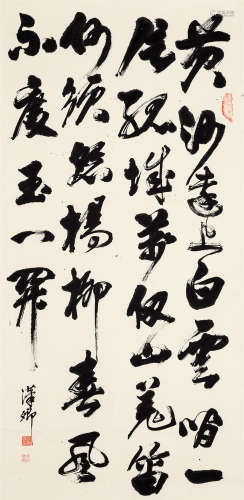 黃沙遠上白雲間一
片孤城萬仞山羌笛
何須怨楊柳春風
不度玉門關
漢卿